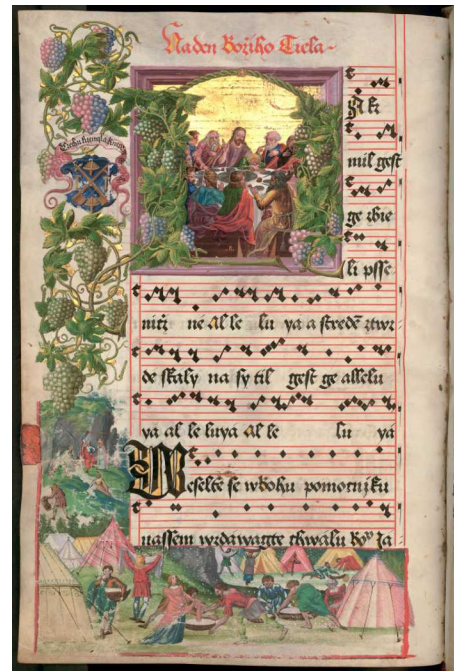 Na den Božiho Tiela
Ach kmplatowny
Ak
mil gest
ge zbie
li psse
nicz ne Al le lu ya a stredē ztwr
de skaly na sy til gest ge allelu
ya al le luya al le lu ya
Weselte se wbohu pomocnjku
nassem wzdawagte chwalu Boᵒ Ja